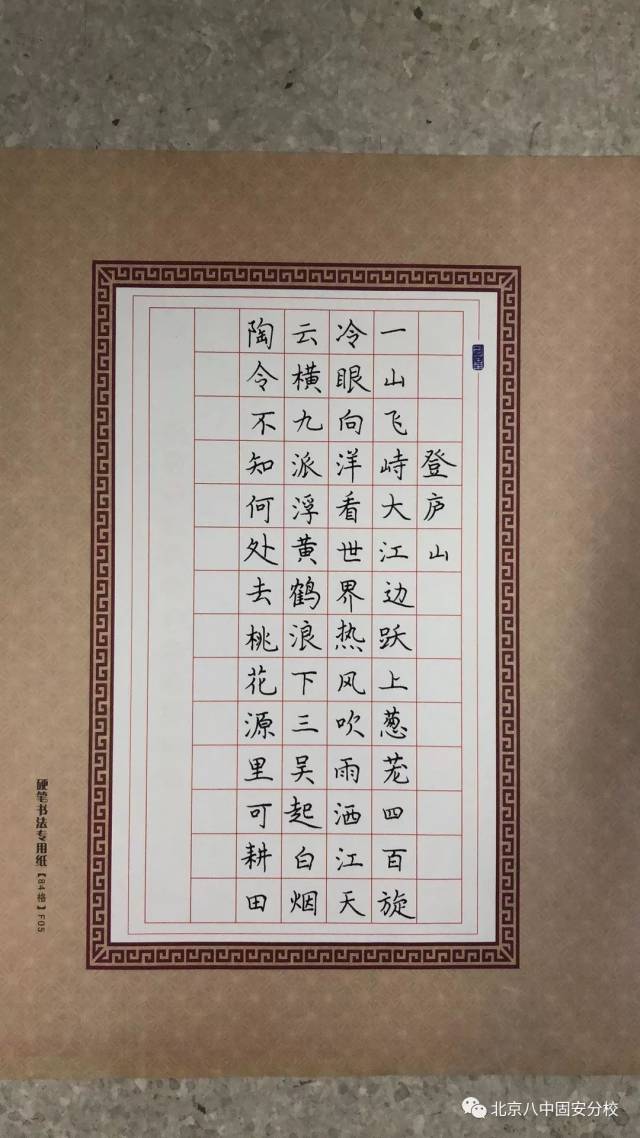 登庐山
一山飞峙大江边跃上葱茏四百旋
冷眼向洋看世界热风吹雨洒江天
云横九派浮黄鹤浪下三吴起白烟
陶令不知何处去桃花源里可耕田
硬笔书法专用纸【84格】F05
北京八中固安分校